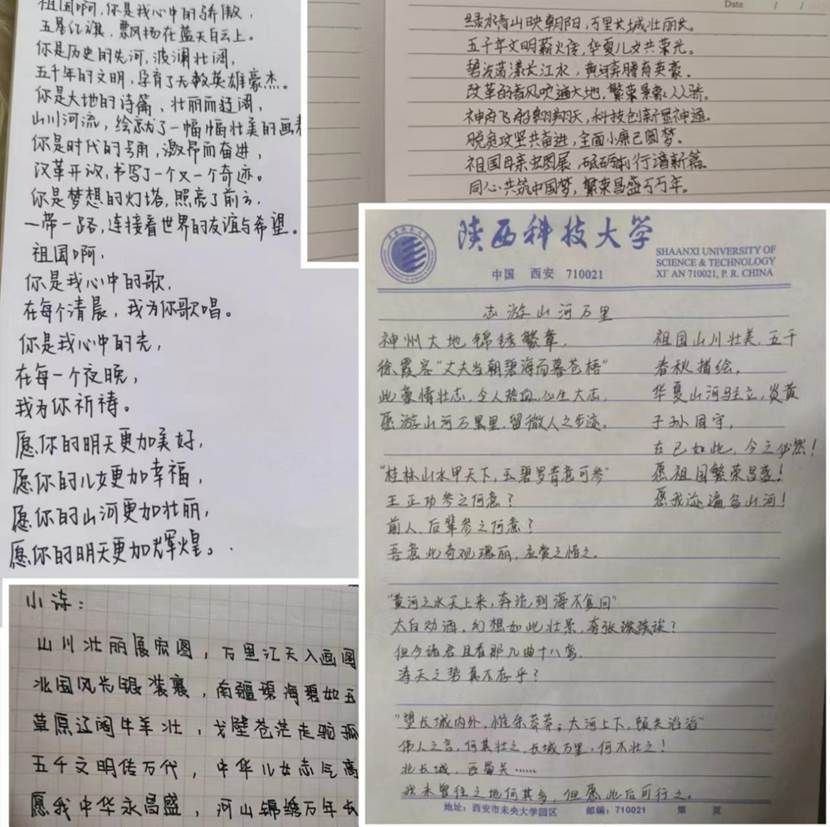 祖国啊,你是我心中的骄傲,
五星红旗,飘扬在蓝天白云上。
你是历史的先河,波澜壮阔,
五千年的文明,孕育了无数英雄豪杰。
你是大地的诗篇,壮丽而辽阔,
山川河流,绘就了一幅幅壮美的画卷
你是时代的号角,激昂而奋进,
改革开放,书写了一个又一个奇迹。
你是梦想的灯塔,照亮了前方,
一带一路,连接着世界的友谊与希望。
祖国啊,
你是我心中的歌,
在每个清晨,我为你歌唱。
你是我心中的光,
在每一个夜晚,
我为你祈祷。
愿你的明天更加美好,
愿你的儿女更加幸福,
愿你的山河更加壮丽,
愿你的明天更加辉煌。
Date / /
绿水青山映朝阳,万里长城壮丽长。
五千年文明薪火传,华夏儿女共荣光。
碧波荡漾长江水,黄河奔腾育英豪。
改革的春风吹遍大地,繁荣景象人人骄。
神舟飞船翱翔天,科技创新显神通。
脱贫攻坚共奋进,全面小康已圆梦。
祖国母亲宏图展,砥砺前行谱新篇。
同心共筑中国梦,繁荣昌盛万万年。
陕西科技大学
SHAANXI UNIVERSITY OF
SCIENCE & TECHNOLOGY
XI'AN 710021, P. R. CHINA
中国 西安 710021
志游山河万里
神州大地锦绣繁章
徐霞客“丈夫当朝碧海而暮苍梧”
此豪情壮志,令人热血,心生大志,
愿游山河万里,留微人之步迹。
“桂林山水甲天下,玉碧罗青意可参”
王正功参之何意?
前人、后辈参之何意?
吾意此奇观瑰丽,应赏之惜之。
“黄河之水天上来,奔流到海不复回”
太白劝酒,幻想如此壮景,夸张
但今诸君且看那九曲十八弯,
滔天之势真不存乎?
“望长城内外,惟余莽莽;大河上下,顿失滔滔”
伟人之言,何其壮之,长城万里,何不壮之!
北长城,西
我未曾往之地何其多,但愿此后可行之。
祖国山川壮美,五千
春秋描绘,
华夏山河屹立,炎黄
子孙固守,
古已如此,今之必然!
愿祖国繁荣昌盛!
愿我游遍名山河!
地址:西安市未央大学园区 邮编:710021 第 页
小诗:
山川壮丽展宏图,万里江天入画图
北国风光银装裹,南疆碧海碧如玉
草原辽阔牛羊壮,戈壁苍茫走驼
五千文明传万代,中华儿女志气高
愿我中华永昌盛,河山锦绣万年长